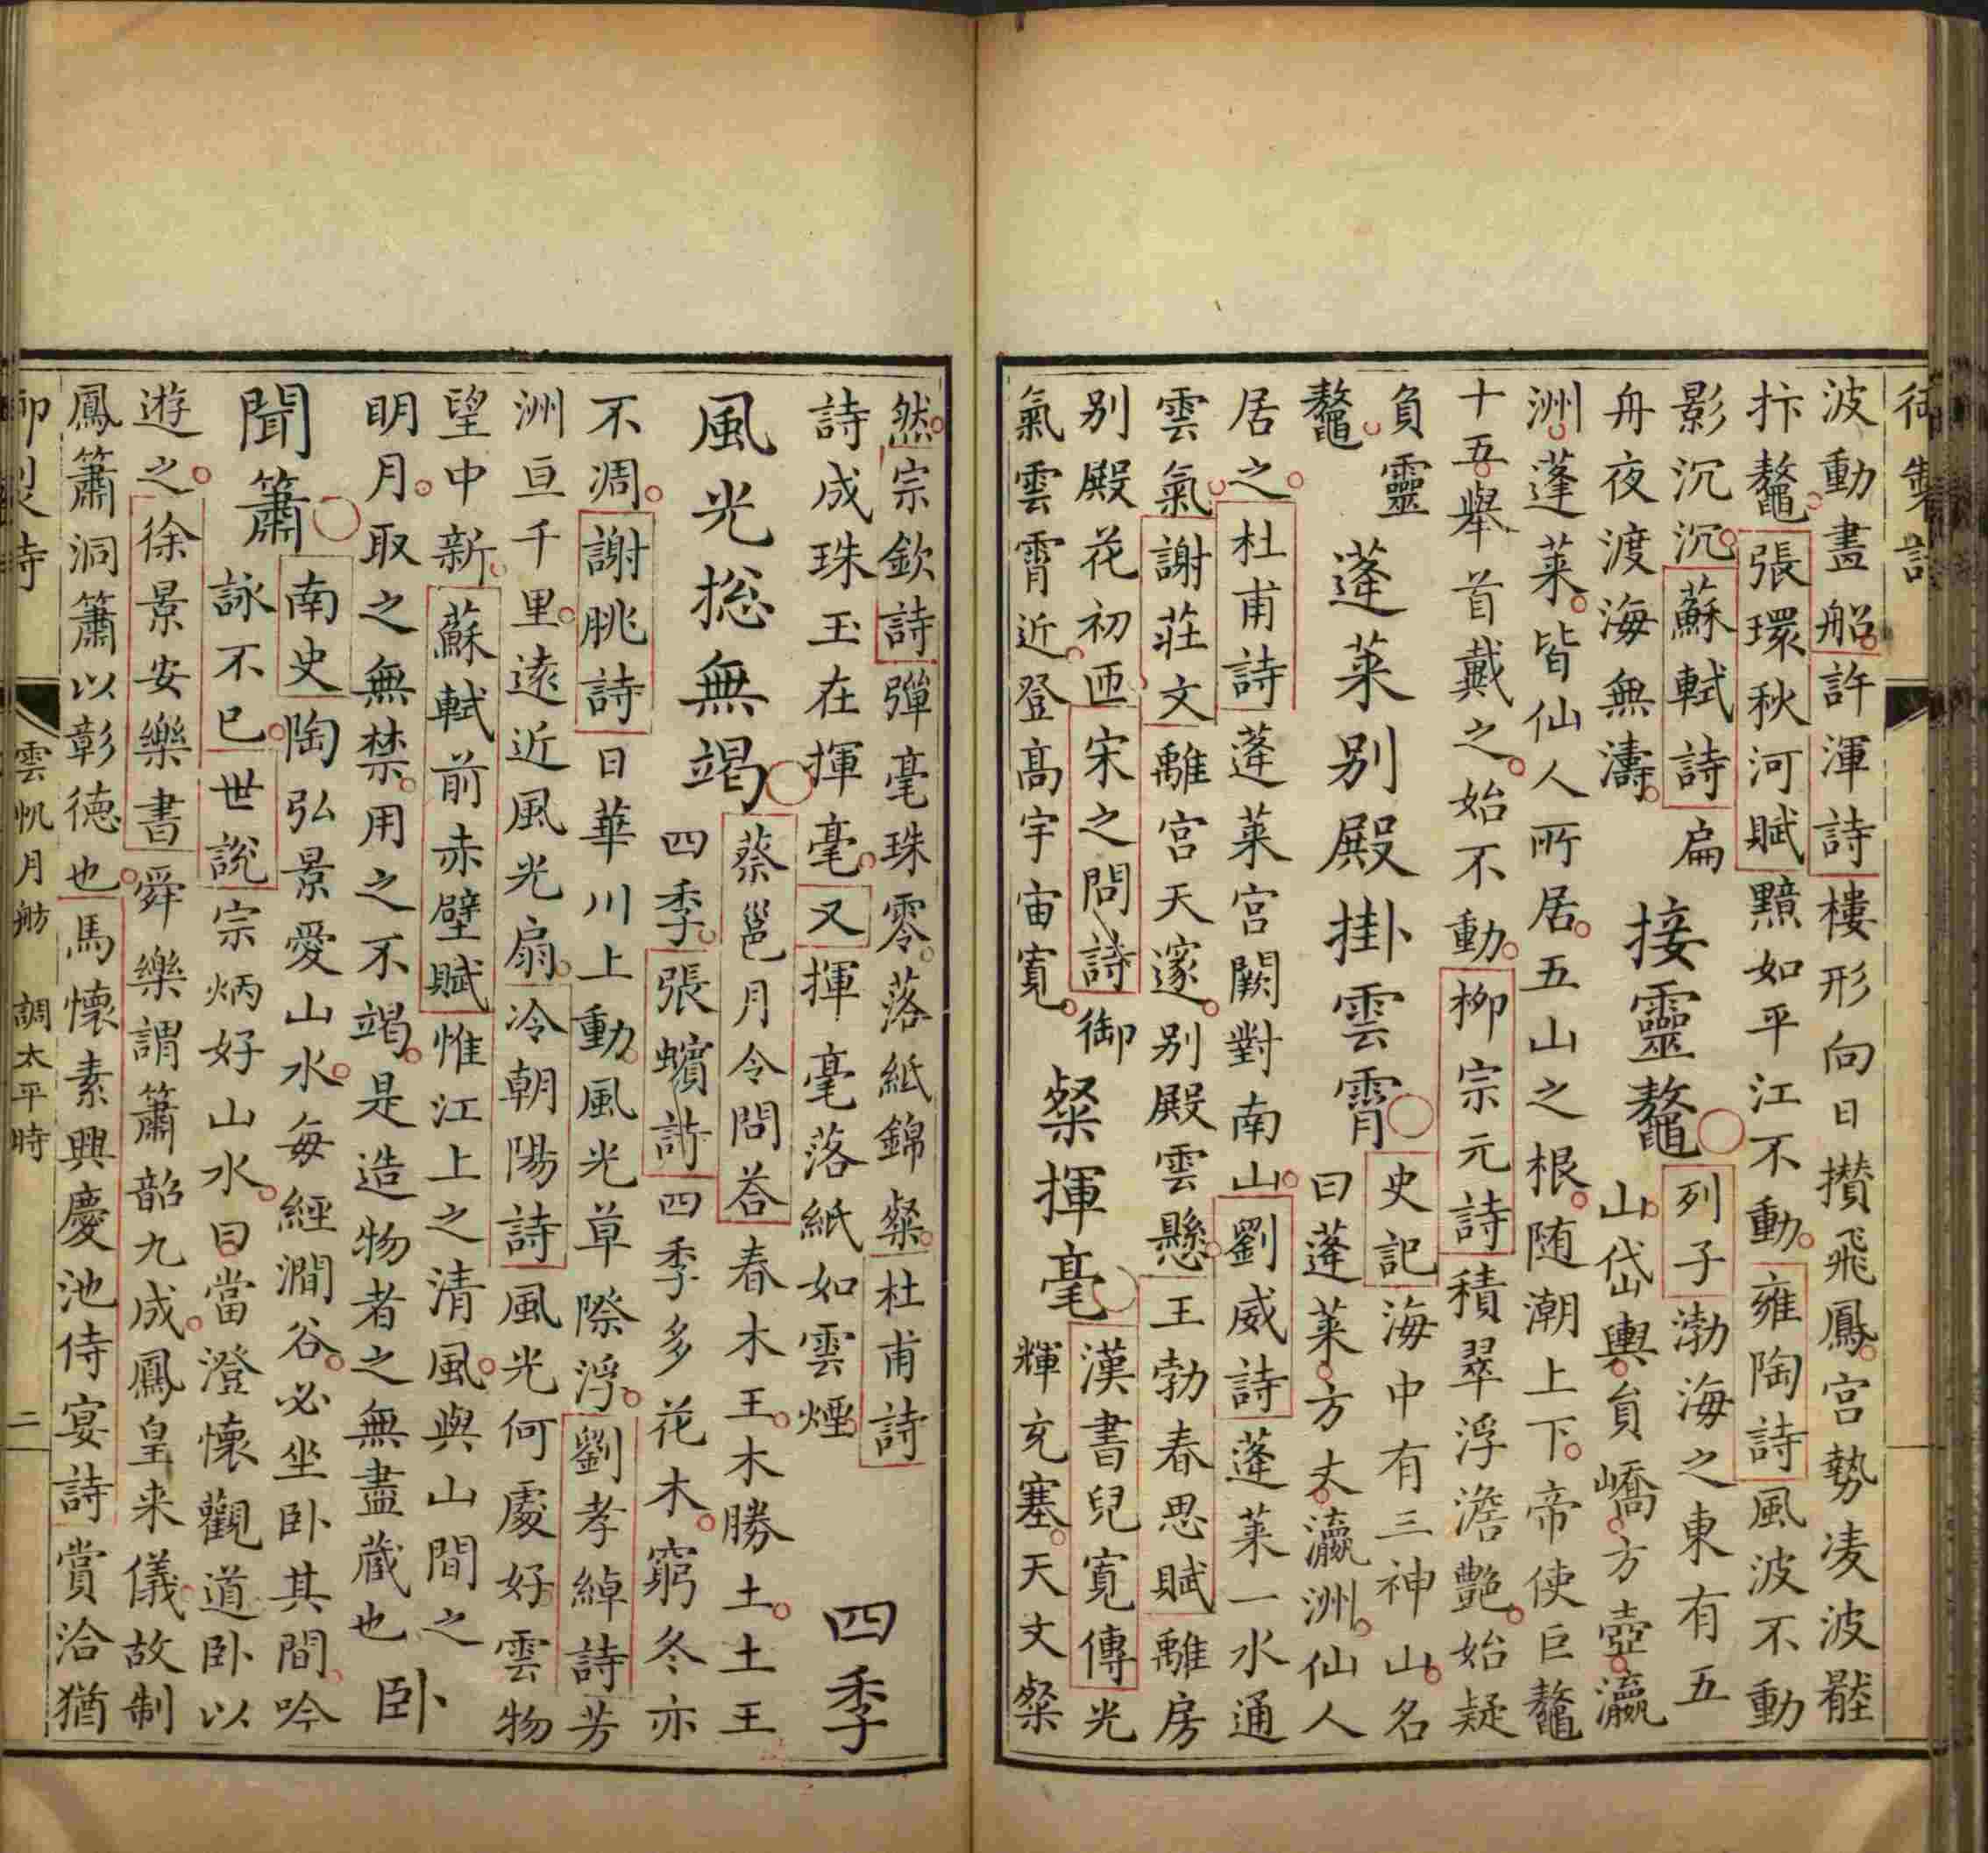 御製詩
波動畫船許渾詩樓形向日攢飛鳳宮勢凌波壓
抃鼇張環秋河賦黯如平江不動雍陶詩風波不動
影沉沉蘇軾詩扁
舟夜渡海無濤
接靈鼇
列子渤海之東有五
山岱輿員嶠方壺瀛
洲蓬萊皆仙人所居五山之根随潮上下帝使巨鼇
十五舉首戴之始不動柳宗元詩積翠浮澹艷始疑
負靈
鼇
蓬萊別殿掛雲霄
史記海中有三神山名
曰蓬萊方丈瀛洲仙人
居之杜甫詩蓬萊宮闕對南山劉威詩蓬萊一水通
雲氣謝莊文離宮天邃别殿雲懸王勃春思賦離房
别殿花初匝宋之問詩御
氣雲霄近登高宇宙寬
粲揮毫
漢書兒寬傳光
輝充塞天文粲
然宗欽詩彈毫珠零落紙錦粲杜甫詩
詩成珠玉在揮毫又揮毫落紙如雲煙
四季
風光捴無竭
蔡邕月令問荅春木王木勝土土王
四季張蠙詩四季多花木窮冬亦
不凋謝朓詩日華川上動風光草際浮劉孝綽詩芳
洲亘千里逺近風光扇冷朝陽詩風光何處好雲物
望中新蘇軾前赤壁賦惟江上之清風與山間之
明月取之無禁用之不竭是造物者之無盡蔵也
卧
聞簫
南史陶弘景愛山水每經澗谷必坐卧其間吟
詠不已世說宗炳好山水曰當澄懷觀道卧以
遊之徐景安樂書舜樂謂簫韶九成鳳皇来儀故制
鳳簫洞簫以彰德也馬懷素興慶池侍宴詩賞洽猶
御製詩 雲帆月舫 調太平時 二